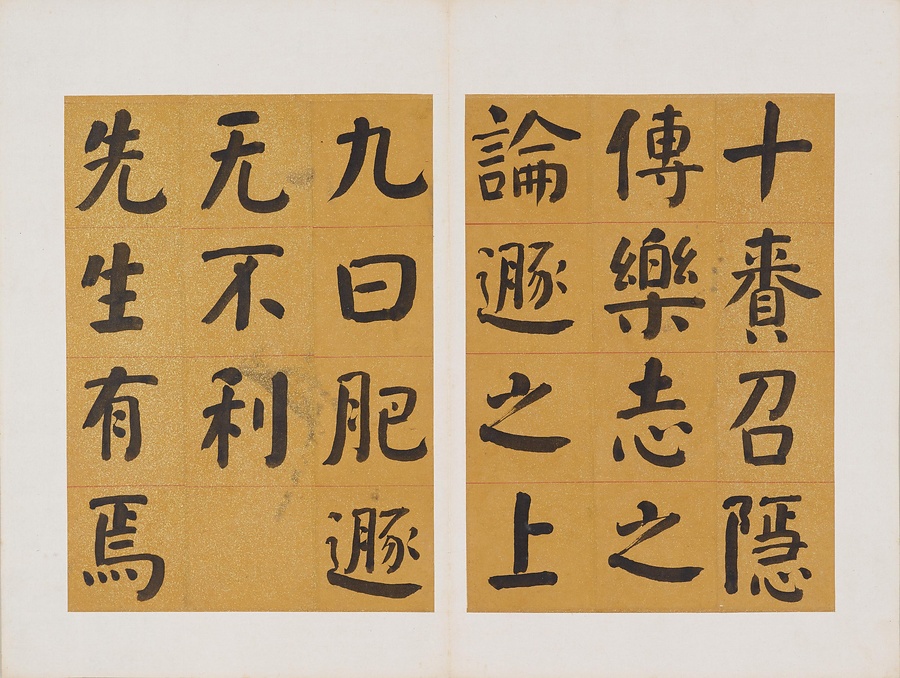 十賚召隱
傳樂志之
論遯之上
九曰肥遯
无不利
先生有焉